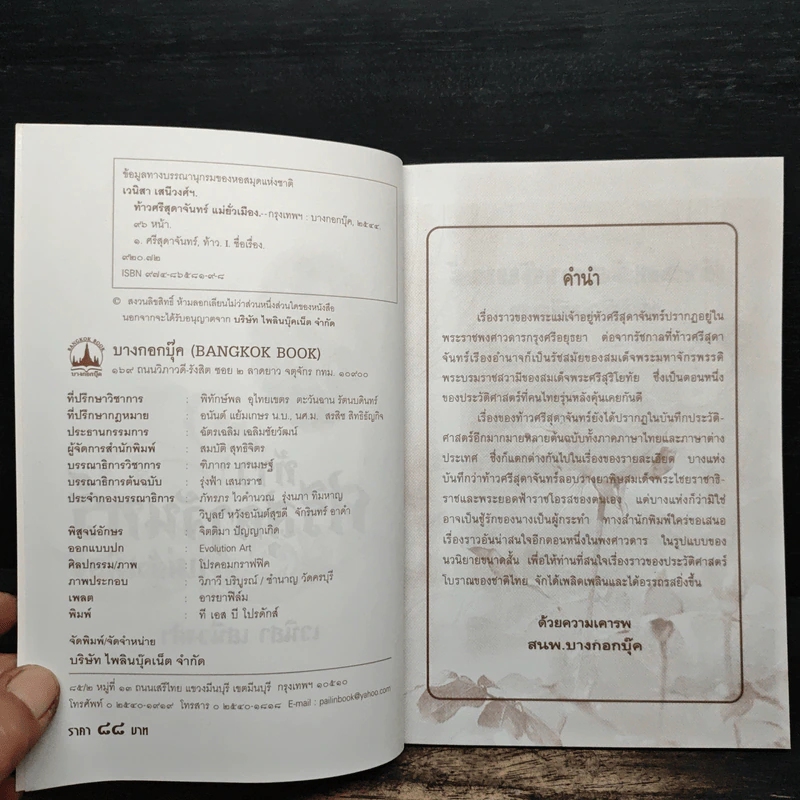 ข้อมูลทางบรรณานุกรมของหอสมุดแห่งชาติ
เวนิสา เสนีวงศ์ฯ.
ท้าวศรีสุดาจันทร์ แม่ยั่วเมือง.--กรุงเทพฯ : บางกอกบุ๊ค, ๒๕๔๔.
๙๖ หน้า.
๑. ศรีสุดาจันทร์, ท้าว. I. ชื่อเรื่อง.
๙๒๐.๗๒
ISBN ๙๗๔-๘๖๕๘๑-๙-๘
© สงวนลิขสิทธิ์ ห้ามลอกเลียนไม่ว่าส่วนหนึ่งส่วนใดของหนังสือ
นอกจากจะได้รับอนุญาตจาก บริษัท ไพลินบุ๊คเน็ต จำกัด
BANGKOK BOOK
บางกอกบุ๊ค
บางกอกบุ๊ค (BANGKOK BOOK)
๑๖๙ ถนนวิภาวดี-รังสิต ซอย ๒ ลาดยาว จตุจักร กทม. ๑๐๙๐๐
ที่ปรึกษาวิชาการ : พิทักษ์พล อุไทยเขตร ตะวันฉาน รัตนบดินทร์
ที่ปรึกษากฎหมาย : อนันต์ แย้มเกษร น.บ., นศ.ม. สรสิช สิทธิธัญกิจ
ประธานกรรมการ : ฉัตรเฉลิม เฉลิมชัยวัฒน์
ผู้จัดการสำนักพิมพ์ : สมบัติ สุทธิจิตร
บรรณาธิการวิชาการ : ฑิภากร บารเมษฐ์
บรรณาธิการต้นฉบับ : รุ่งฟ้า เสนาราช
ประจำกองบรรณาธิการ : ภัทรภร ไวคำนวณ รุ่งนภา ทิมหาญ
วิบูลย์ หวังอนันต์สุขดี จักรินทร์ อาดำ
พิสูจน์อักษร : จิตติมา ปัญญาเกิด
ออกแบบปก : Evolution Art
ศิลปกรรม/ภาพ : โปรคอมกราฟฟิค
ภาพประกอบ : วิภาวี บริบูรณ์ / ชำนาญ วัดครบุรี
เพลต : อารยาฟิล์ม
พิมพ์ : ที เอส บี โปรดักส์
จัดพิมพ์/จัดจำหน่าย
บริษัท ไพลินบุ๊คเน็ต จำกัด
๘๕/๒ หมู่ที่ ๑๓ ถนนเสรีไทย แขวงมีนบุรี เขตมีนบุรี กรุงเทพฯ ๑๐๕๑๐
โทรศัพท์ ๐ ๒๕๔๐-๑๙๑๙ โทรสาร ๐ ๒๕๔๐-๑๘๑๘ E-mail : pailinbook@yahoo.com
ราคา ๘๘ บาท
คำนำ
เรื่องราวของพระแม่เจ้าอยู่หัวศรีสุดาจันทร์ปรากฏอยู่ใน
พระราชพงศาวดารกรุงศรีอยุธยา ต่อจากรัชกาลที่ท้าวศรีสุดา
จันทร์เรืองอำนาจก็เป็นรัชสมัยของสมเด็จพระมหาจักรพรรดิ
พระบรมราชสวามีของสมเด็จพระศรีสุริโยทัย ซึ่งเป็นตอนหนึ่ง
ของประวัติศาสตร์ที่คนไทยรุ่นหลังคุ้นเคยกันดี
เรื่องของท้าวศรีสุดาจันทร์ยังได้ปรากฏในบันทึกประวัติ-
ศาสตร์อีกมากมายหลายต้นฉบับทั้งภาคภาษาไทยและภาษาต่าง
ประเทศ ซึ่งก็แตกต่างกันไปในเรื่องของรายละเอียด บางแห่ง
บันทึกว่าท้าวศรีสุดาจันทร์ลอบวางยาพิษสมเด็จพระไชยราชาธิ-
ราชและพระยอดฟ้าราชโอรสของตนเอง แต่บางแห่งก็ว่ามิใช่
อาจเป็นชู้รักของนางเป็นผู้กระทำ ทางสำนักพิมพ์ใคร่ขอเสนอ
เรื่องราวอันน่าสนใจอีกตอนหนึ่งในพงศาวดาร ในรูปแบบของ
นวนิยายขนาดสั้น เพื่อให้ท่านที่สนใจเรื่องราวของประวัติศาสตร์
โบราณของชาติไทย จักได้เพลิดเพลินและได้อรรถรสยิ่งขึ้น
ด้วยความเคารพ
สนพ.บางกอกบุ๊ค